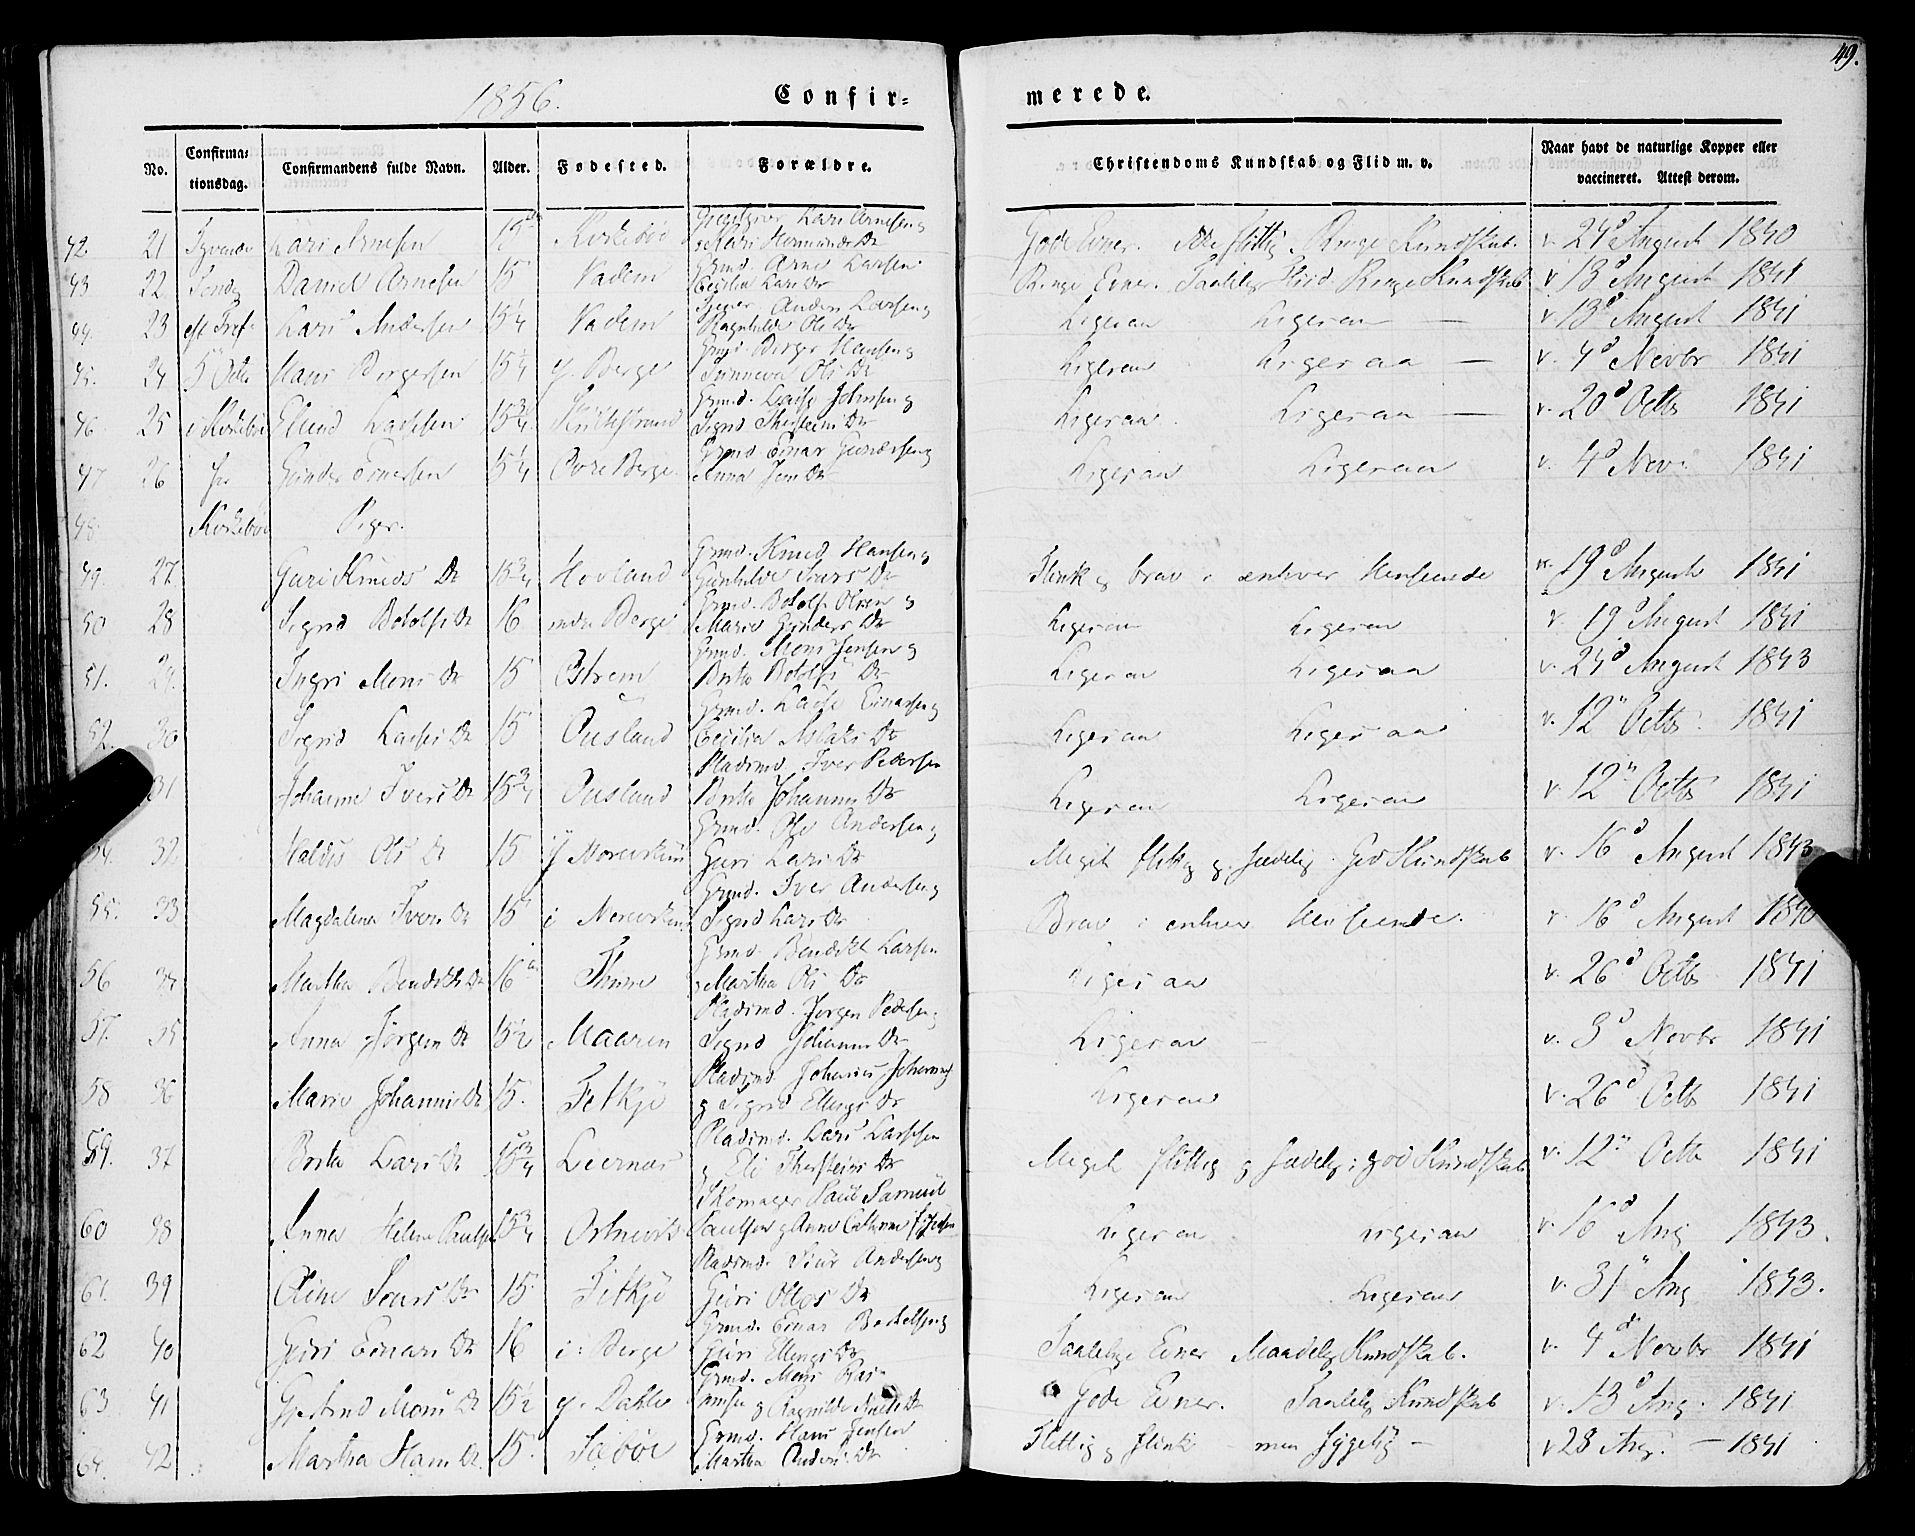 49.
1856. Confir= merede.
No. Confirma-tionsdag. Confirmandens fulde Navn. Alder. Fødested. Forældre. Christendoms Kundskab og Flid m. v. Naar havt de naturlige Kopper eller vaccineret. Attest derom.
42 21 Lars Arnesen 15 Lars Arnesen og Kari Hermunds Dr Gode Evner. Ikke flittig. Ringe Kundskab. v. 24d August 1840
43 22 Daniel Arnesen 15 Vadem Grmd. Arne Larsen Cecilia Lars Dr Ringe Evner. Taalelig Flid. Ringe Kundskab v. 13d August 1841
44. 23 Lars Andersen 15¼ Vadem Anders Larsen og Ragnhilde Ols Dr Ligesaa Ligesaa — v. 13d August 1841
45. 24 5te Octb Hans Birgersen 15¼ y. Berge Grmd. Birger Hansen og Synneva Ols Dr Ligesaa Ligesaa — v. 4d Novbr 1841
46 25 Lassesen 15¾ Grmd. Lasse Johnsen og Sigrid Thorsteins Dr Ligesaa Ligesaa — v. 20d Octb 1841
47 26 for Gunder Einersen 15¼ Øvre Berge Grmd Einar Gundersen og Anna Jens Dr Ligesaa Ligesaa v. 4d Nov. 1841
48. Piger.
49. 27. Guri Knuds Dr 15¾ Hovland Grmd. Knud Hansen og Gunhilde Siurs Dr Flink og brav i enhver Henseende v. 19d August 1841
50 28 Sigrid Botolfs Dr 16 indre Berge Grmd. Botolf Olsen og Marie Gunders Dr Ligesaa Ligesaa v. 19d August 1841
51. 29. Ingri Mons Dr 15 Østrem Grmd. Mons Jensen og Britha Botolfs Dr Ligesaa Ligesaa v. 24d August 1843
52. 30 Sigrid Lasses Dr 15 Ousland Grmd. Lasse Einarsen og Cecilia Aslaks Dr Ligesaa Ligesaa v. 12te Octb. 1841
31 Johanne Ivers Dr 15¾ Ousland Pladsmd. Iver Pedersen Britha Johannes Dr Ligesaa Ligesaa v. 12te Octb 1841
54. 32 Ols Dr 15 Grmd. Ole Andersen og Guri Lars Dr Meget flittig og sædelig. God Kundskab v. 16d August 1843
55. 33 Magdalena Ivers Dr 15 Grmd. Iver Andersen og Sigrid Lars Dr Brav i enhver Henseende. v. 16d August 1840
56 34 Martha Bendikts Dr 16 Grmd Bendikt Larsen Martha Ols Dr Ligesaa v. 26d Octb 1841
57. 35 Anna Jørgens Dr 15½ Maaren Pladsmd. Jørgen Pedersen og Sigrid Johannes Dr Ligesaa v. 3d Novbr 1841
58 36 Marie Johannes Dr 15. Fetkjo Pladsmd. Johannes og Sigrid Ellings Dr Ligesaa v. 26d Octb 1841
59. 37 Brita Lars Dr 15¾ Pladsmd. Lars Larsen og Eli Thorsteins Dr Meget flittig og sædelig; god Kundskab v. 12te Octb 1841
60 38 Anna Helene Paulsen 15¾ Ortnevik Skomager Paul Samuel Paulsen og Anna Cathrine Ligesaa Ligesaa v. 16d Aug 1843.
61. 39 Oline Siurs Dr 15. Fetkjo Pladsmd. Siur Andersen og Guri Ottos Dr Ligesaa Ligesaa v. 31te Aug 1843.
62 40 Guri Einars Dr 16 i: Berge Grmd. Einar og Guri Ellings Dr Taalelige Evner Maadelig Kundskab. v. 4de Novbr 1841
63 41 Gjertrud Mons Dr 15½ y. Dahle Grmd. Mons og Ragnilde Knuds Dr Gode Evner. Taalelig Kundskab v. 13d Aug. 1841
64. 42 Martha Hans Dr. 15. Sæbøe Grmd. Hans Jensen Martha Anders Dr Flittig og flink — men sygelig — v 28 Aug. — 1841